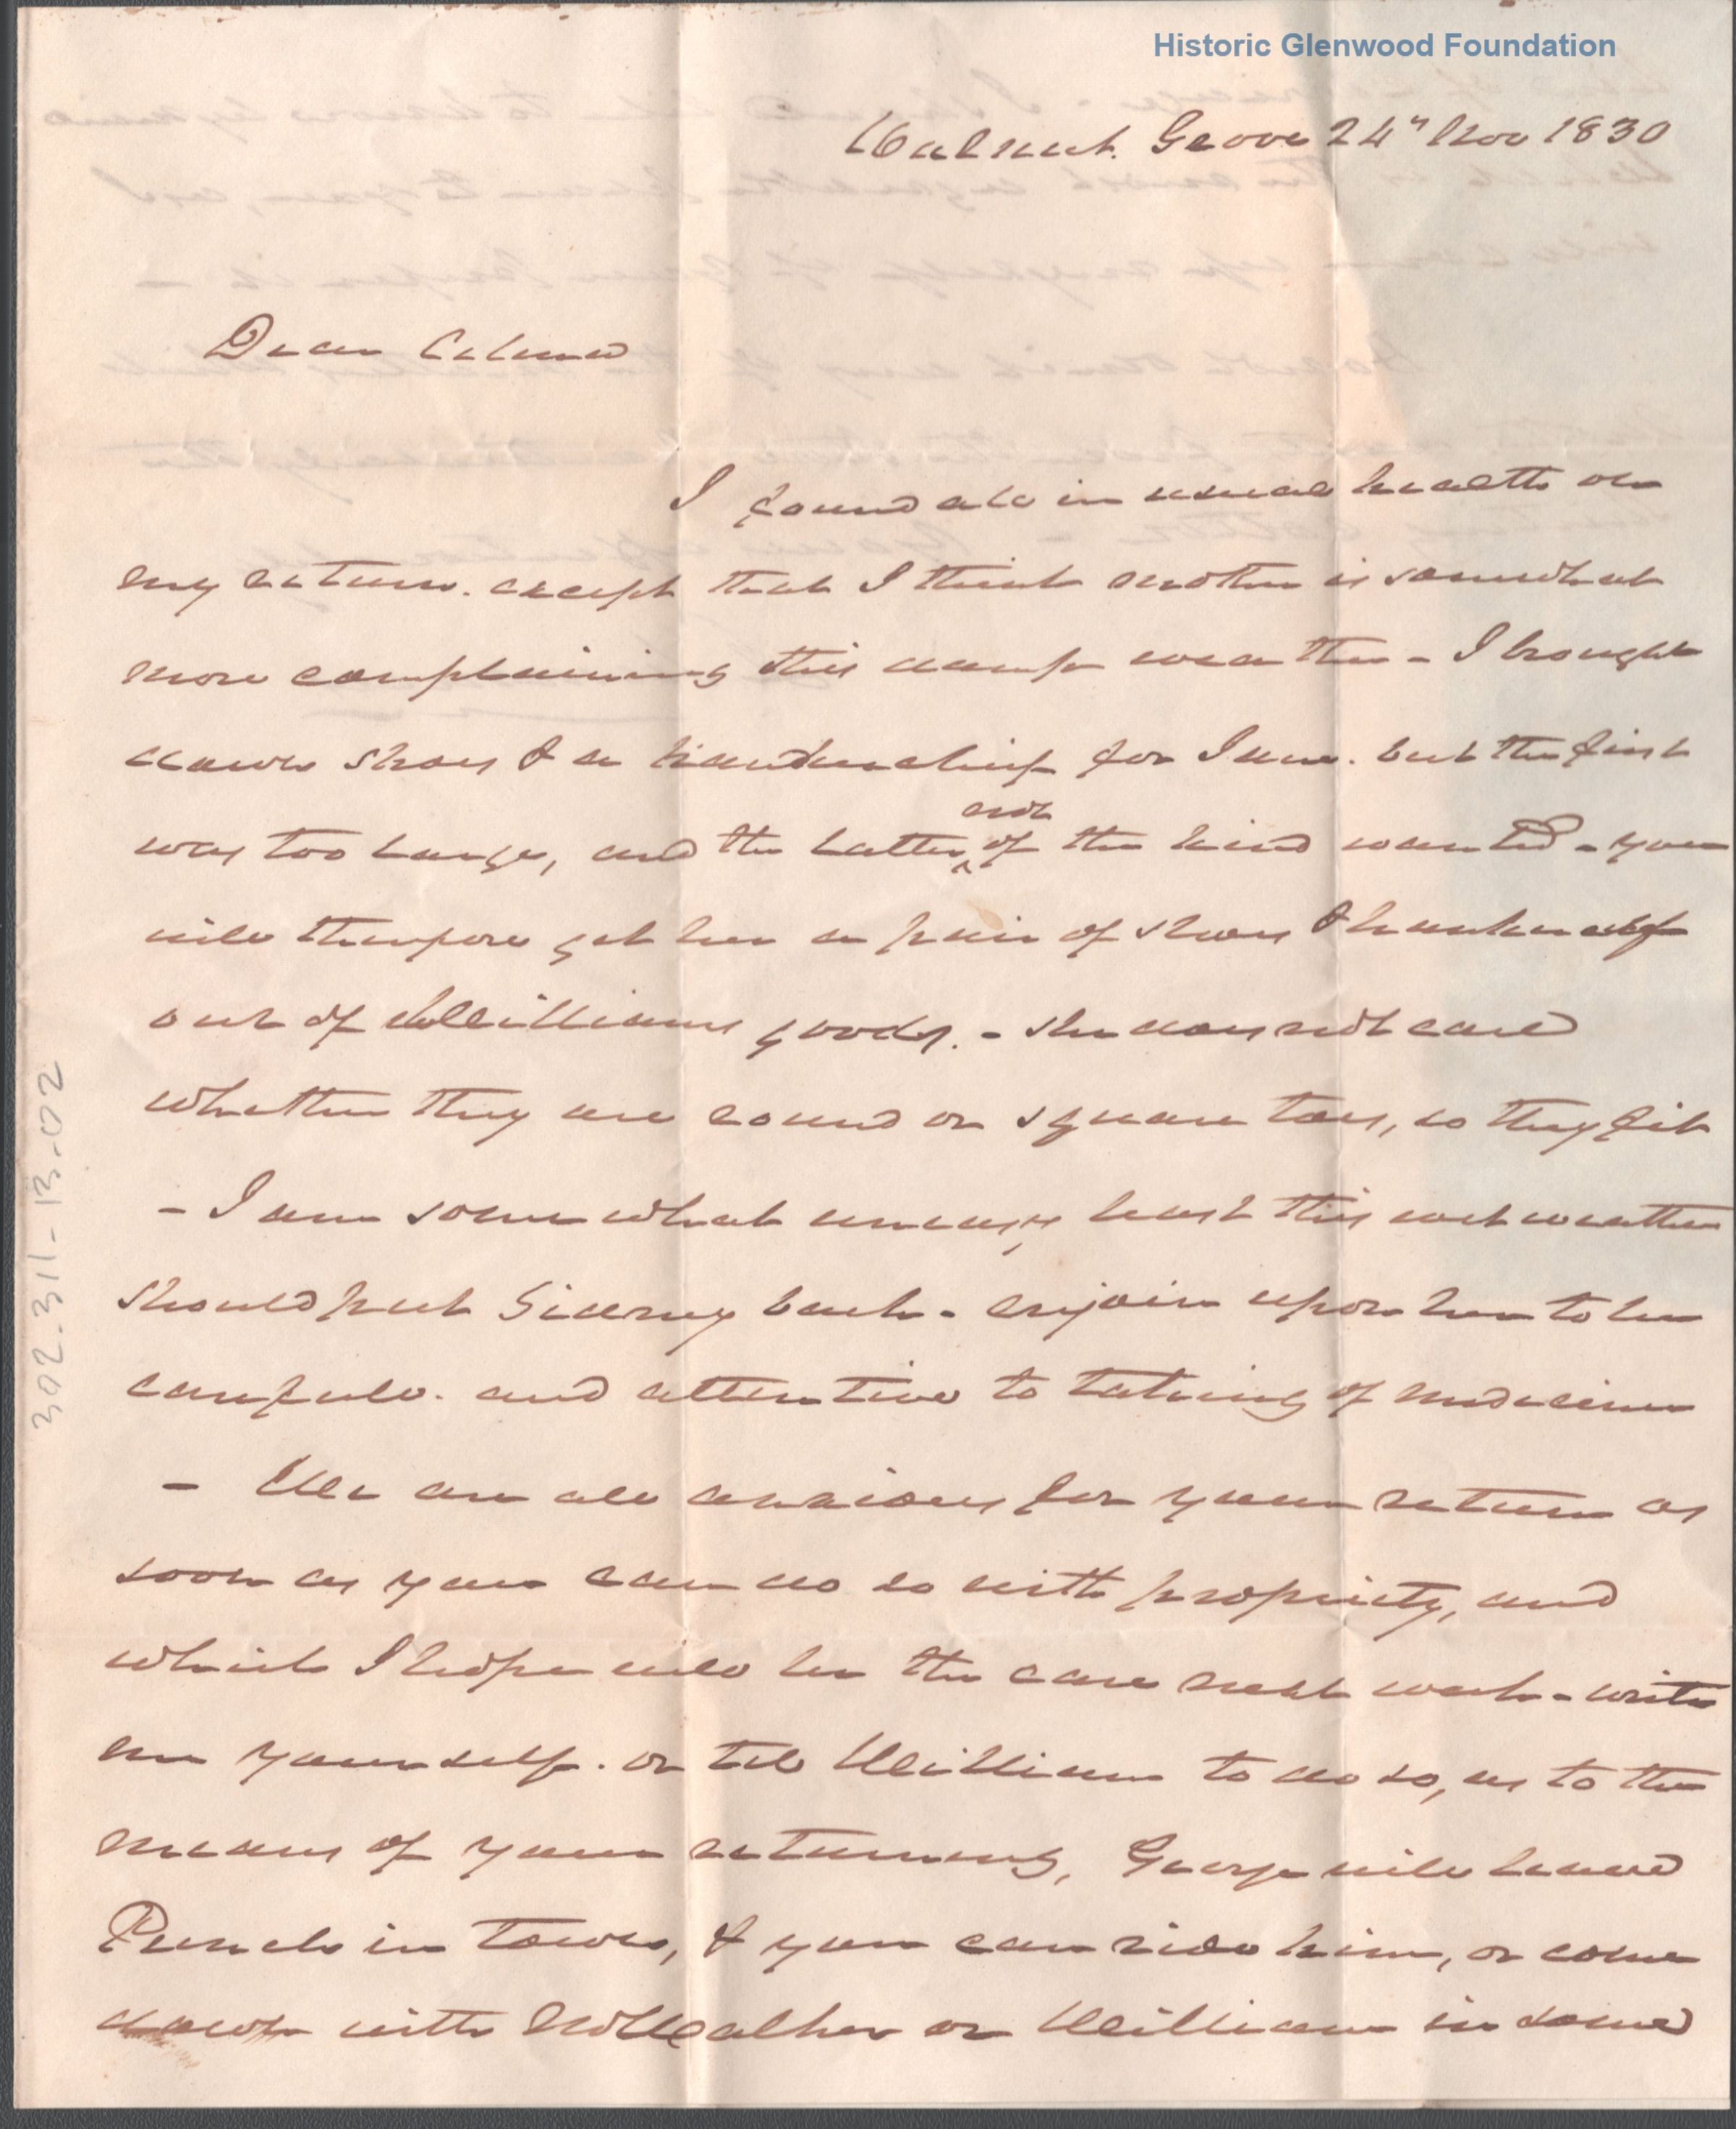 Historic Glenwood Foundation
Walnut Grove 24" Nov 1830
Dear
I found all in usual health on
my return. except that I think mother is somewhat
more complaining this damp weather - I brought
down shoes & a handkerchief for Jane. but the first
was too large, and the latter not of the kind wanted - you
will therefore get her a pair of shoes & hankercheif
out of Williams goods. - she does not care
whether they are round or square toes, so they fit
- I am somewhat uneasy, least this wet weather
should put Sidney back - enjoin upon her to be
careful. and attentive to taking of medicine
- We are all anxious for your return as
soon as you can do so with propriety, and
which I hope will be the case next week - write
me yourself. or tell William to do so, as to the
means of your returning, George will leave
Punch in town, & you can ride him, or come
down with or William in some
302.311-13.02